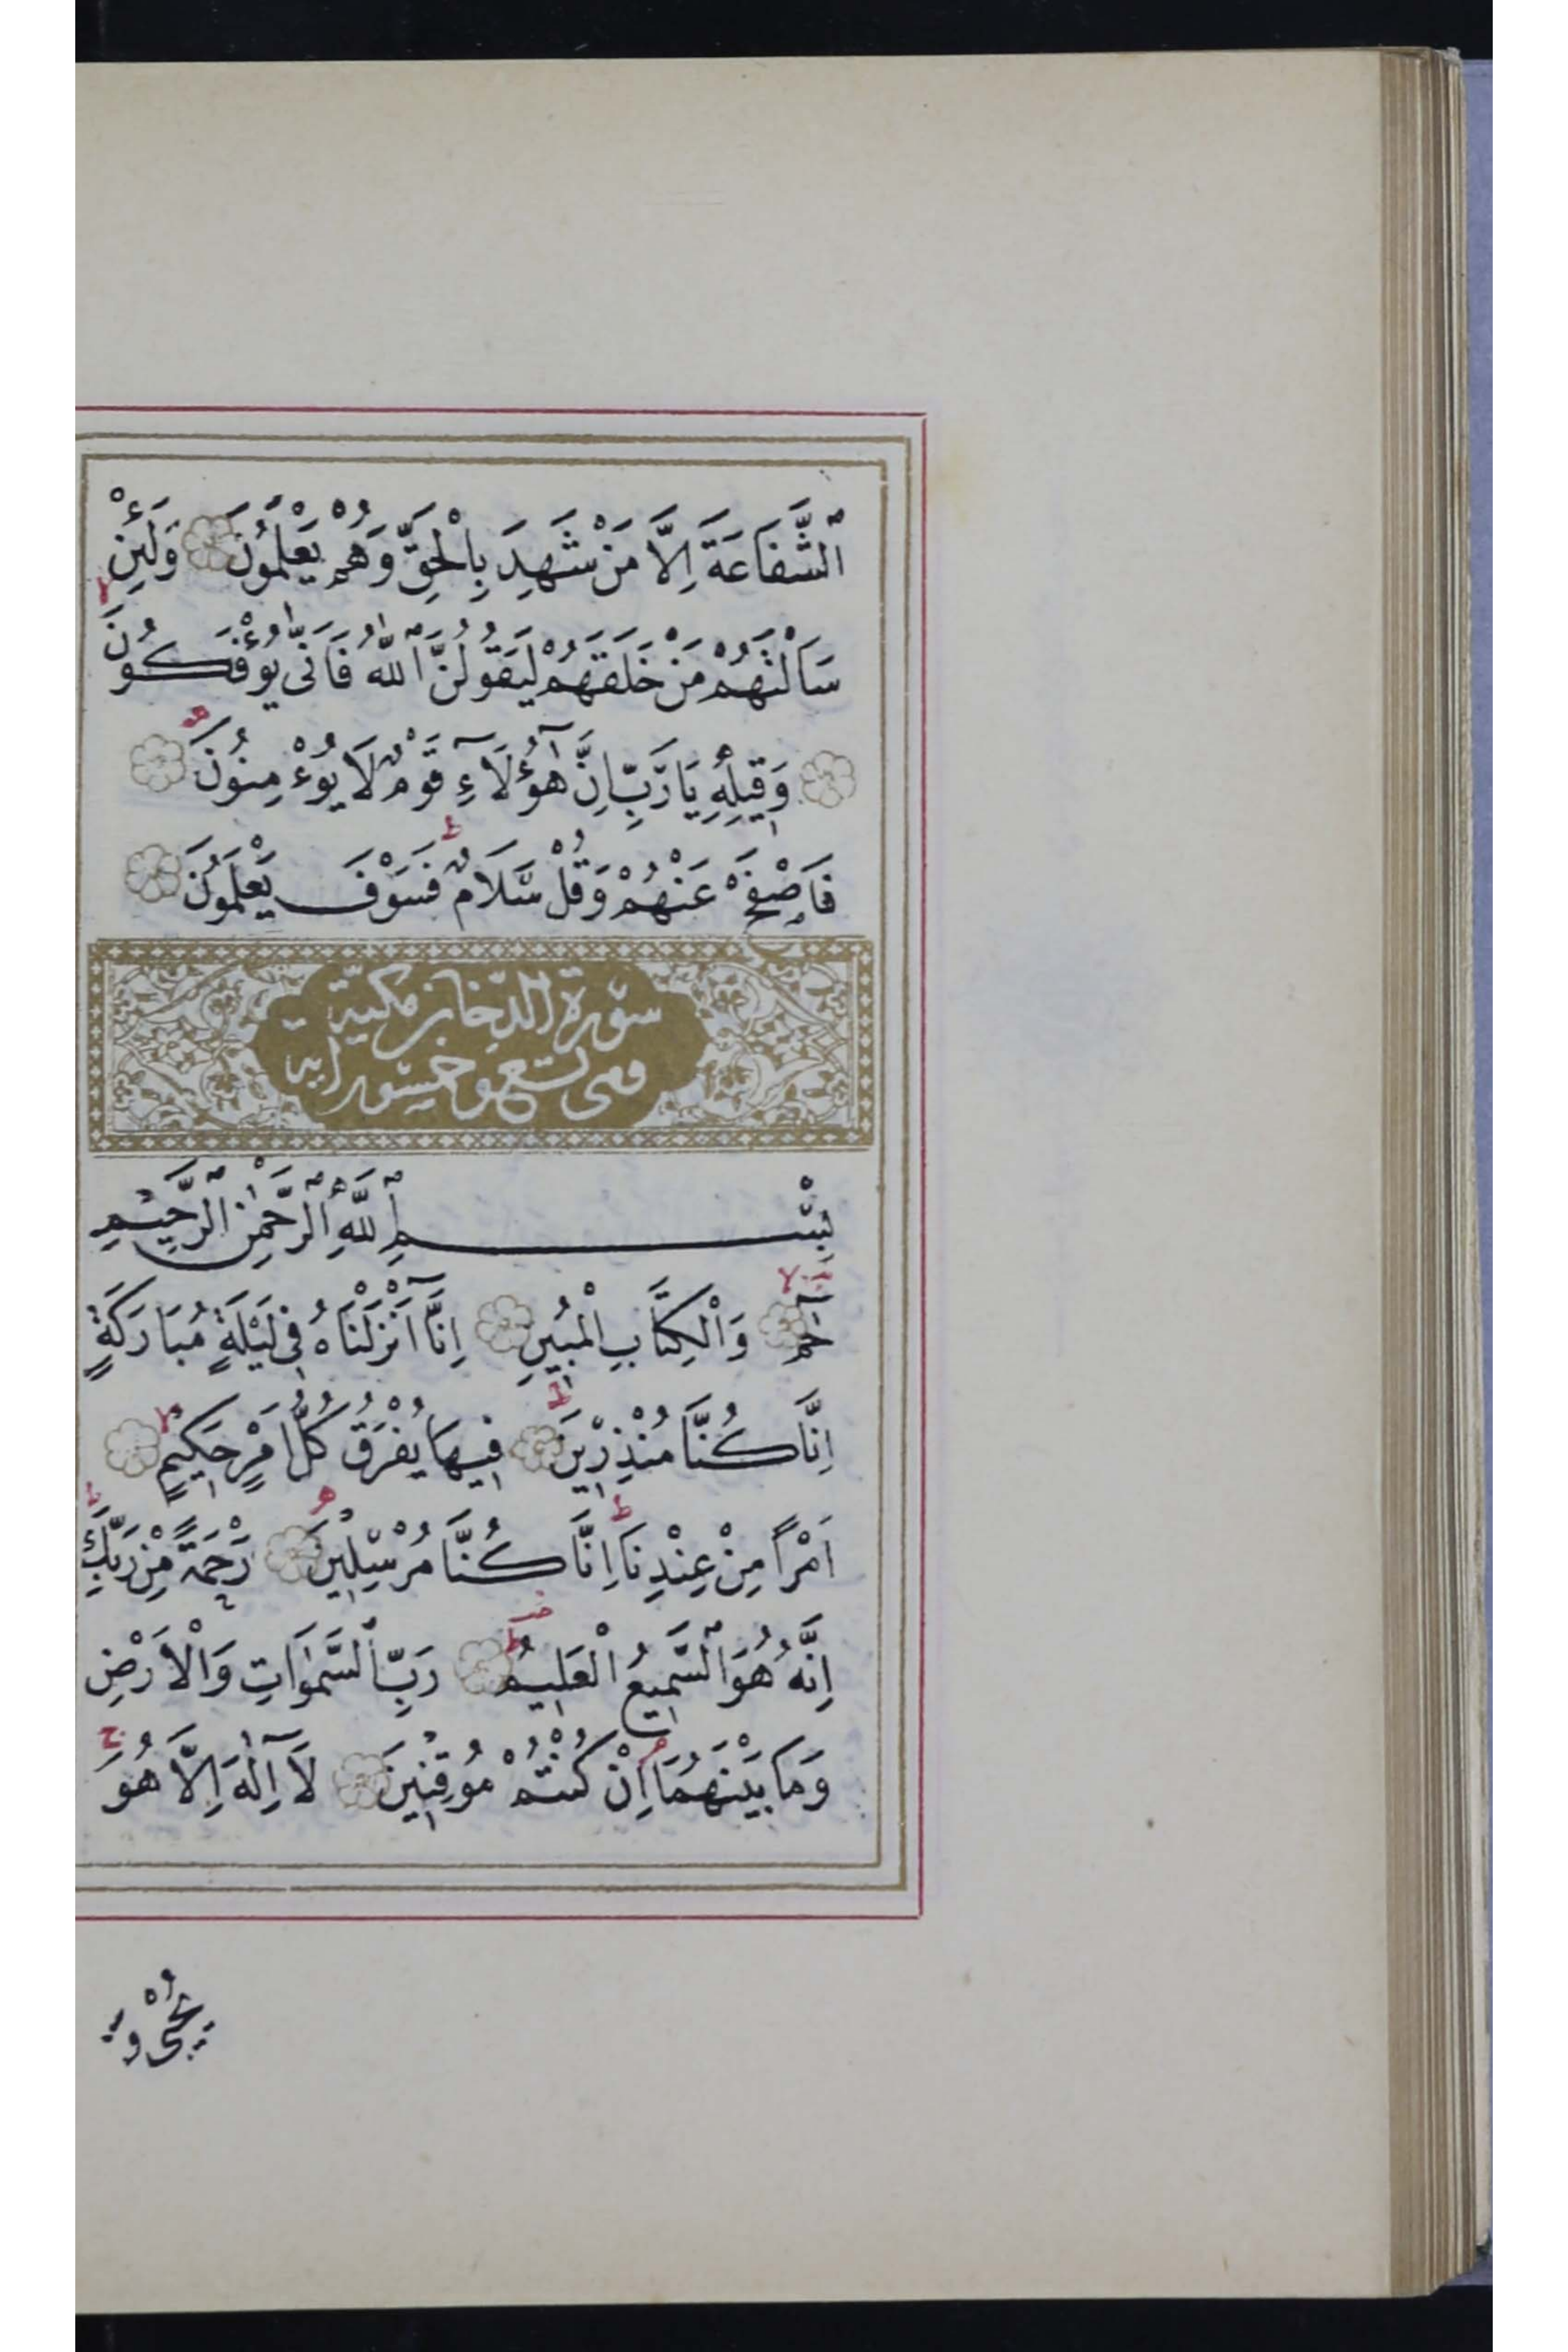 ٱلشَّفَاعَةَ اِلَّا مَنْ شَهِدَ بِالْحَقِّ وَهُمْ يَعْلَمُونَ وَلَئِنْ
سَاَلْتَهُمْ مَنْ خَلَقَهُمْ لَيَقُولُنَّ ٱللّٰهُ فَاَنّٰى يُؤْفَكُونَ
وَقِيلِهٖ يَا رَبِّ اِنَّ هٰٓؤُلَآءِ قَوْمٌ لَا يُؤْمِنُونَ
فَاصْفَحْ عَنْهُمْ وَقُلْ سَلَامٌ فَسَوْفَ يَعْلَمُونَ
سورة الدخان مكية
وهى تسع وخمسون اية
بِسْمِ ٱللّٰهِ ٱلرَّحْمٰنِ ٱلرَّحِيمِ
حٰمٓ وَالْكِتَابِ الْمُبِينِ اِنَّٓا اَنْزَلْنَاهُ فِى لَيْلَةٍ مُبَارَكَةٍ
اِنَّا كُنَّا مُنْذِرِينَ فِيهَا يُفْرَقُ كُلُّ اَمْرٍ حَكِيمٍ
اَمْرًا مِنْ عِنْدِنَا اِنَّا كُنَّا مُرْسِلِينَ رَحْمَةً مِنْ رَبِّكَ
اِنَّهُ هُوَ ٱلسَّمِيعُ الْعَلِيمُ رَبِّ ٱلسَّمٰوَاتِ وَالْاَرْضِ
وَمَا بَيْنَهُمَا اِنْ كُنْتُمْ مُوقِنِينَ لَٓا اِلٰهَ اِلَّا هُوَ
يُحْيٖى وَيُ